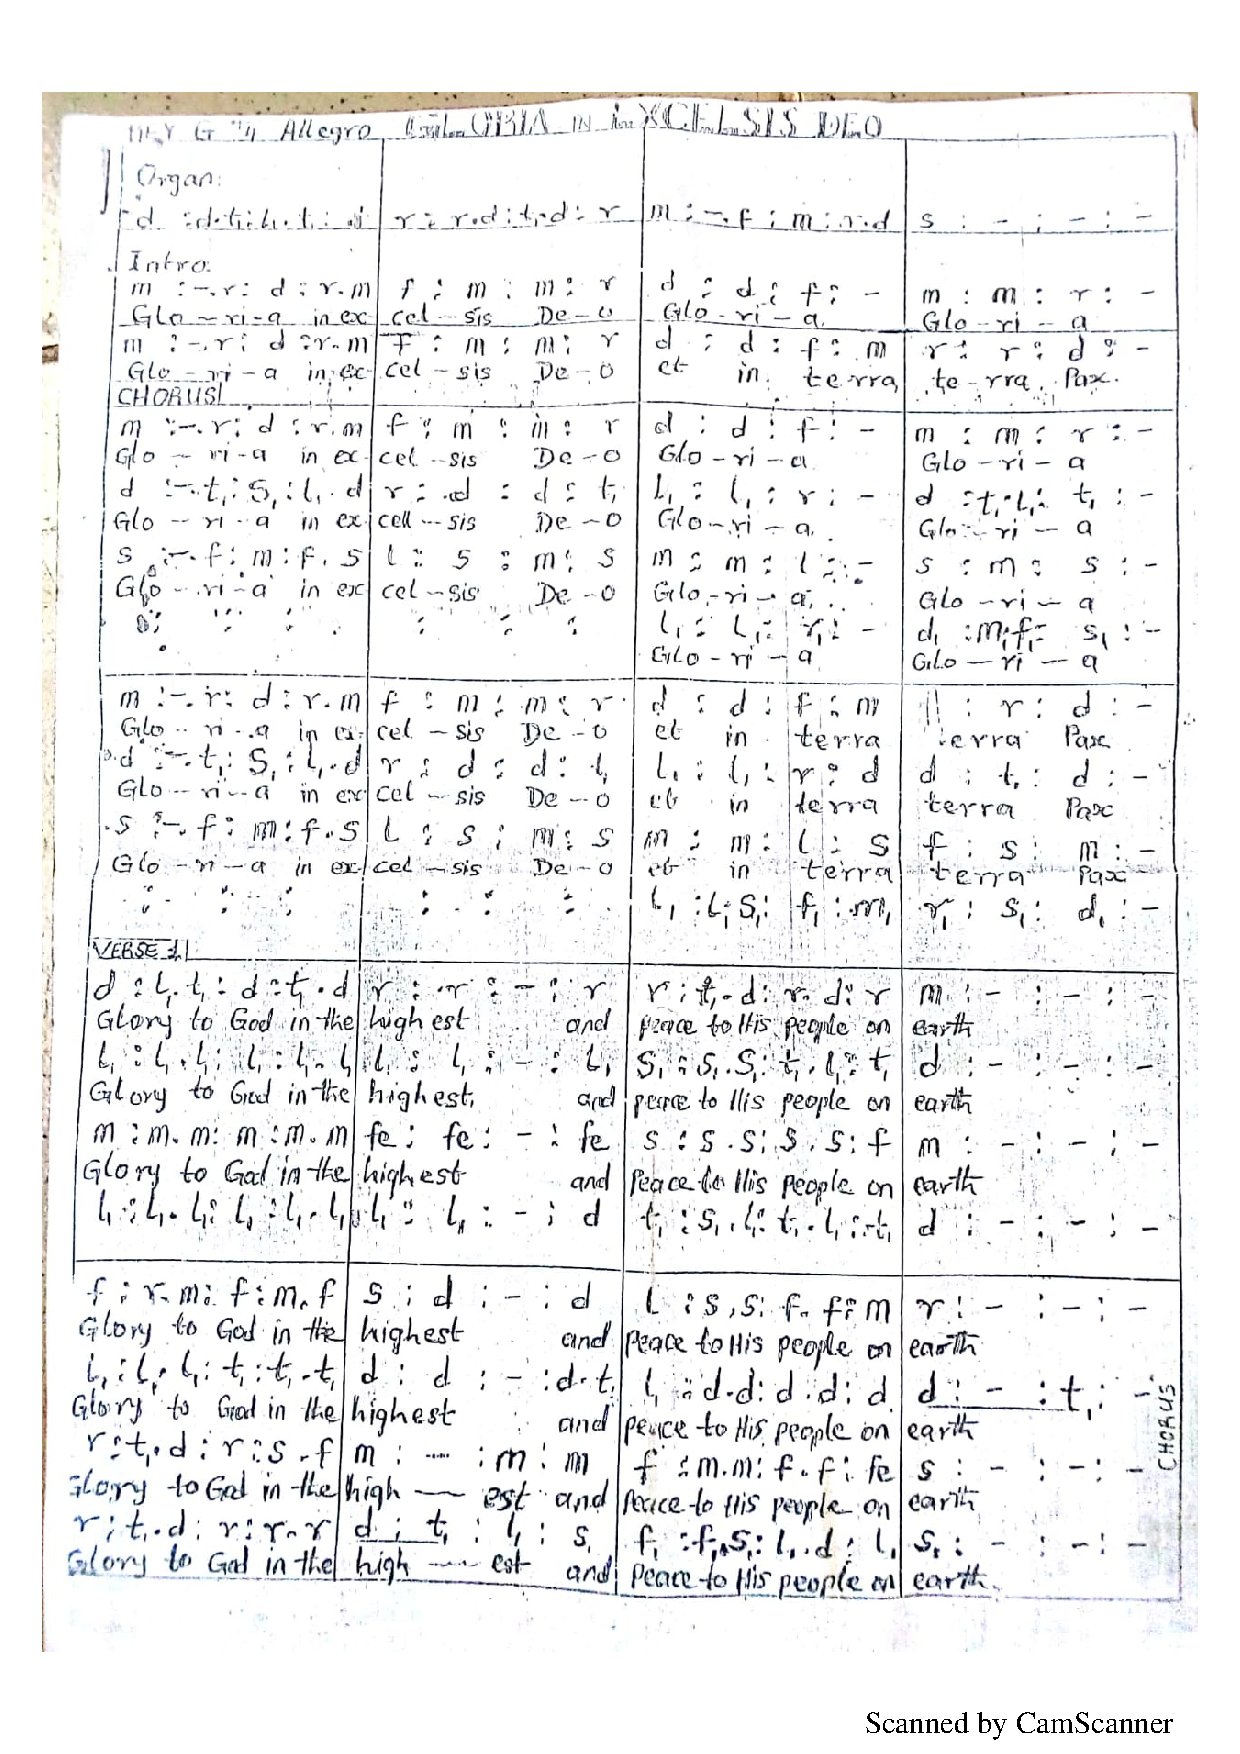 KEY G 4/4 Allegro GLORIA IN EXCELSIS DEO
Organ:
d :d.t₁:l₁.t₁: d | r : r.d : t₁.d : r | m : -.f : m : r.d | s : - : - : -
Intro:
m :-.r: d :r.m | f : m : m: r | d : d : f : - | m : m : r : -
Glo-ri-a in ex cel-sis De-o Glo-ri-a Glo-ri-a
m :-.r: d :r.m | f : m : m: r | d : d : f : m | r : r : d : -
Glo-ri-a in ex cel-sis De-o et in terra te-rra Pax.
CHORUS
m :-.r: d :r.m | f : m : m : r | d : d : f : - | m : m : r : -
Glo-ri-a in ex-cel-sis De-o Glo-ri-a Glo-ri-a
d :-.t₁: s₁ : l₁.d | r : .d : d : t₁ | l₁ : l₁ : r : - | d :t₁.l₁: t₁ : -
Glo-ri-a in ex cell-sis De-o Glo-ri-a Glo-ri-a
s :-.f : m : f.s | l : s : m : s | m : m : l : - | s : m : s : -
Glo-ri-a in ex cel-sis De-o Glo-ri-a, Glo-ri-a
l₁ : l₁ : r₁ : - | d₁ :m₁.f₁: s₁ : -
Glo-ri-a Glo-ri-a
m :-.r: d : r.m | f : m : m : r | d : d : f : m | : r : d : -
Glo-ri-a in ex-cel-sis De-o et in terra terra Pax
d :-.t₁: s₁ : l₁.d | r : d : d : t₁ | l₁ : l₁ : r : d | d : t₁ : d : -
Glo-ri-a in ex cel-sis De-o et in terra terra Pax
s :-.f : m : f.s | l : s : m : s | m : m : l : s | f : s : m : -
Glo-ri-a in ex-cel-sis De-o et in terra terra Pax
l₁ : l₁.s₁: f₁ : m₁ | r₁ : s₁ : d₁ : -
VERSE 1
d : l₁.t₁ : d : t₁.d | r : r : - : r | r : t₁.d : r.d : r | m : - : - : -
Glory to God in the highest and peace to His people on earth
l₁ : l₁.l₁ : l₁ : l₁.l₁ | l₁ : l₁ : - : l₁ | s₁ : s₁.s₁ : t₁.l₁ : t₁ | d : - : - : -
Glory to God in the highest, and peace to His people on earth
m : m.m : m : m.m | fe : fe : - : fe | s : s.s : s.s : f | m : - : - : -
Glory to God in the highest and Peace to His people on earth
l₁ : l₁.l₁ : l₁ : l₁.l₁ | l₁ : l₁ : - : d | t₁ : s₁.l₁ : t₁.l₁ : t₁ | d : - : - : -
f : r.m : f : m.f | s : d : - : d | l : s.s : f.f : m | r : - : - : -
Glory to God in the highest and Peace to His people on earth
l₁ : l₁.l₁ : t₁ : t₁.t₁ | d : d : - : d.t₁ | l₁ : d.d : d.d : d | d : - : t₁ : -
Glory to God in the highest and peace to His people on earth
r : t₁.d : r : s.f | m : - : m : m | f : m.m : f.f : fe | s : - : - : -
Glory to God in the high-est and Peace to His people on earth
r : t₁.d : r : r.r | d : t₁ : l₁ : s₁ | f₁ : f₁.s₁ : l₁.d : l₁ | s₁ : - : - : -
Glory to God in the high-est and Peace to His people on earth.
CHORUS
Scanned by CamScanner